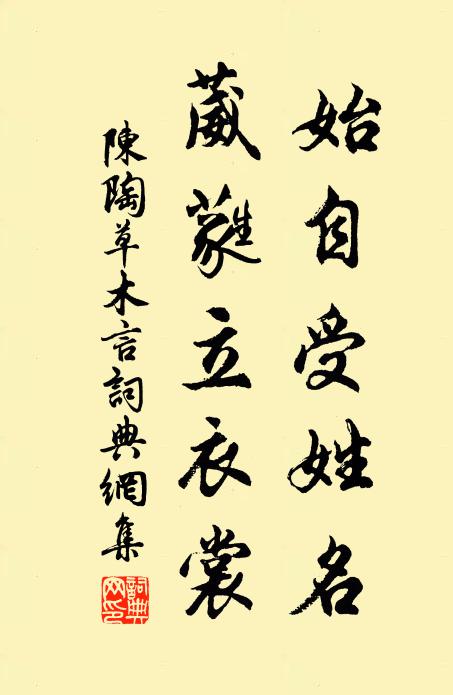 始自受姓名
葳蕤立衣裳
陳陶草木言詞典網集
詞典网印